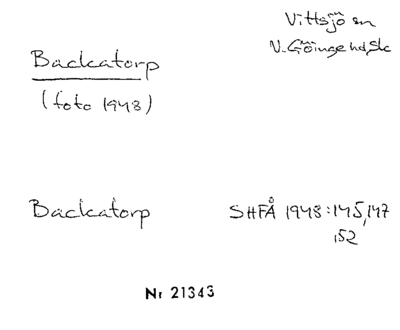 Vittsjö sn
V. Göinge hd, Sk
Backatorp
(foto 1948)
Backatorp SHFÅ 1948:145,147
,152
Nr 21343